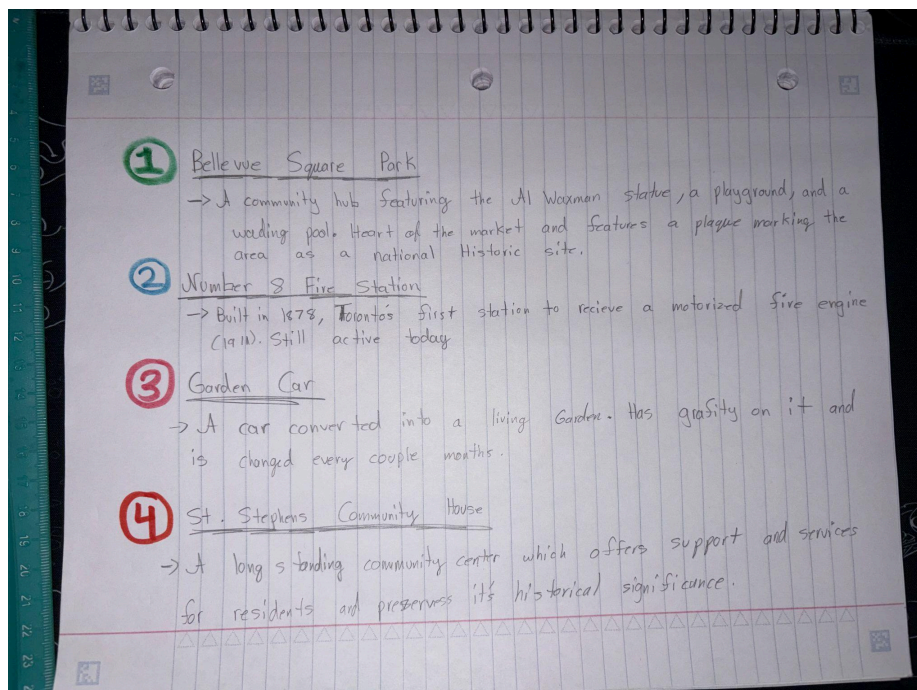 1 Bellevue Square Park
→ A community hub featuring the Al Waxman statue, a playground, and a
wading pool. Heart of the market and features a plaque marking the
area as a national Historic site.
2 Number 8 Fire Station
→ Built in 1878, Toronto's first station to recieve a motorized fire engine
(1911). Still active today
3 Garden Car
→ A car converted into a living Garden. Has grafity on it and
is changed every couple months.
4 St. Stephens Community House
→ A long standing community center which offers support and services
for residents and preservess it's historical significance.